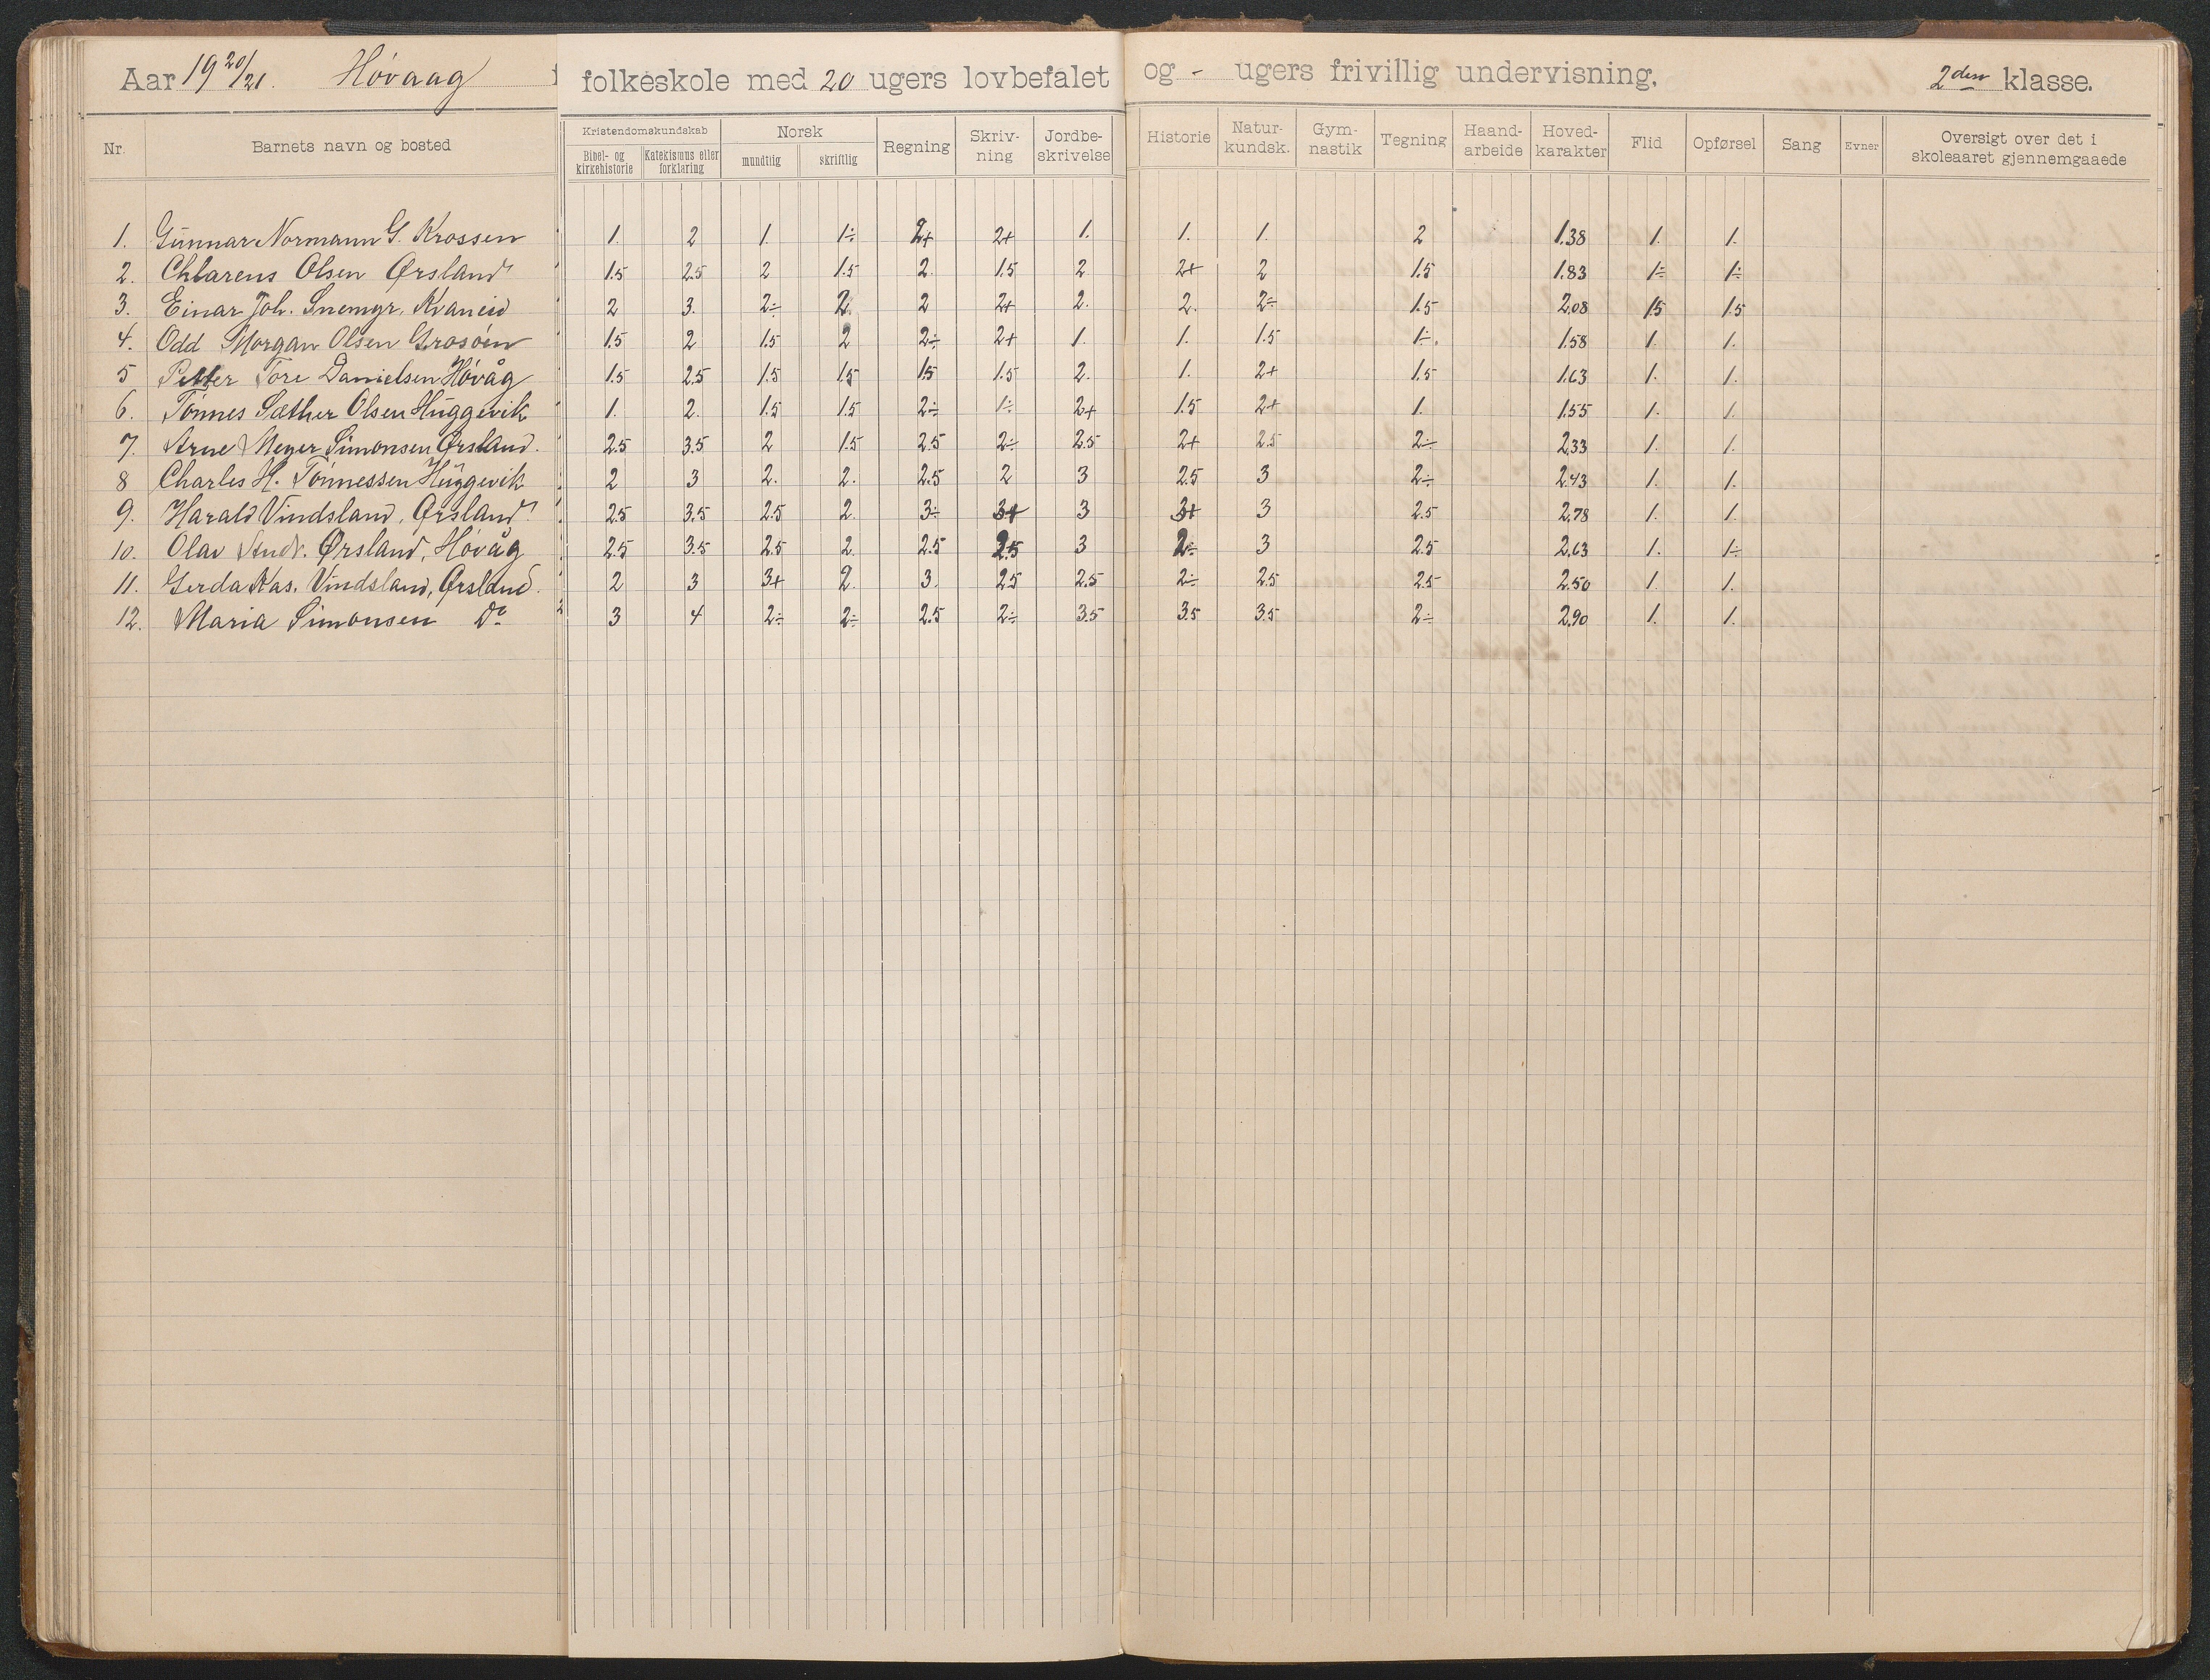 Aar 19 20/21. Høvaag folkeskole med 20 ugers lovbefalet og - ugers frivillig undervisning, 2den klasse.
Nr. Barnets navn og bosted Kristendomskundskab Bibel- og kirkehistorie Katekismus eller forklaring Norsk mundtlig skriftlig Regning Skrivning Jordbeskrivelse Historie Naturkundsk. Gymnastik Tegning Haandarbeide Hovedkarakter Flid Opførsel Sang Evner Oversigt over det i skoleaaret gjennemgaaede
1. Gunnar Normann G. Krossen 1. 2 1. 1÷ 2+ 2+ 1. 1. 1. 2 1.38 1. 1.
2. Chlarens Olsen Ørsland 1.5 2.5 2 1.5 2. 1.5 2 2+ 2 1.5 1.83 1÷ 1÷
3. Einar Joh. Snemyr, Kvaneid 2 3. 2÷ 2. 2 2+ 2. 2. 2÷ 1.5 2,08 1.5 1.5
4. Odd Morgan Olsen Grosøen 1.5 2 1.5 2 2÷ 2+ 1. 1. 1.5 1÷. 1.58 1. 1.
5 Petter Tore Danielsen Høvåg 1.5 2.5 1.5 1.5 1.5 1.5 2. 1. 2+ 1.5 1.63 1. 1.
6. Tønnes Sæther Olsen Huggevik 1. 2. 1.5 1.5 2÷ 1÷ 2+ 1.5 2+ 1. 1.55 1. 1.
7. Arne Meyer Simonsen Ørsland. 2.5 3.5 2 1.5 2.5 2÷ 2.5 2+ 2.5 2÷ 2,33 1. 1.
8 Charles H. Tønnessen Huggevik 2 3 2. 2. 2.5 2 3 2.5 3 2÷ 2.43 1. 1.
9. Harald Vindsland, Ørsland 2.5 3.5 2.5 2. 3÷ 3+ 3 3+ 3 2.5 2,78 1. 1.
10. Olav Andr. Ørsland, Høvåg 2.5 3.5 2.5 2. 2.5 2.5 3 2÷ 3 2.5 2,63 1. 1÷
11. Gerda Kas. Vindsland, Ørsland. 2 3 3+ 2. 3. 2.5 2.5 2÷ 2.5 2.5 2.50 1. 1.
12. Maria Simonsen Do 3 4 2÷ 2÷ 2.5 2÷ 3.5 3.5 3.5 2÷ 2,90 1. 1.